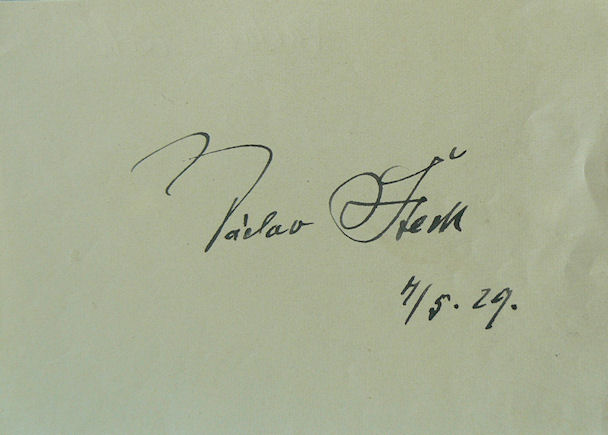 Václav Štech
7/5. 29.